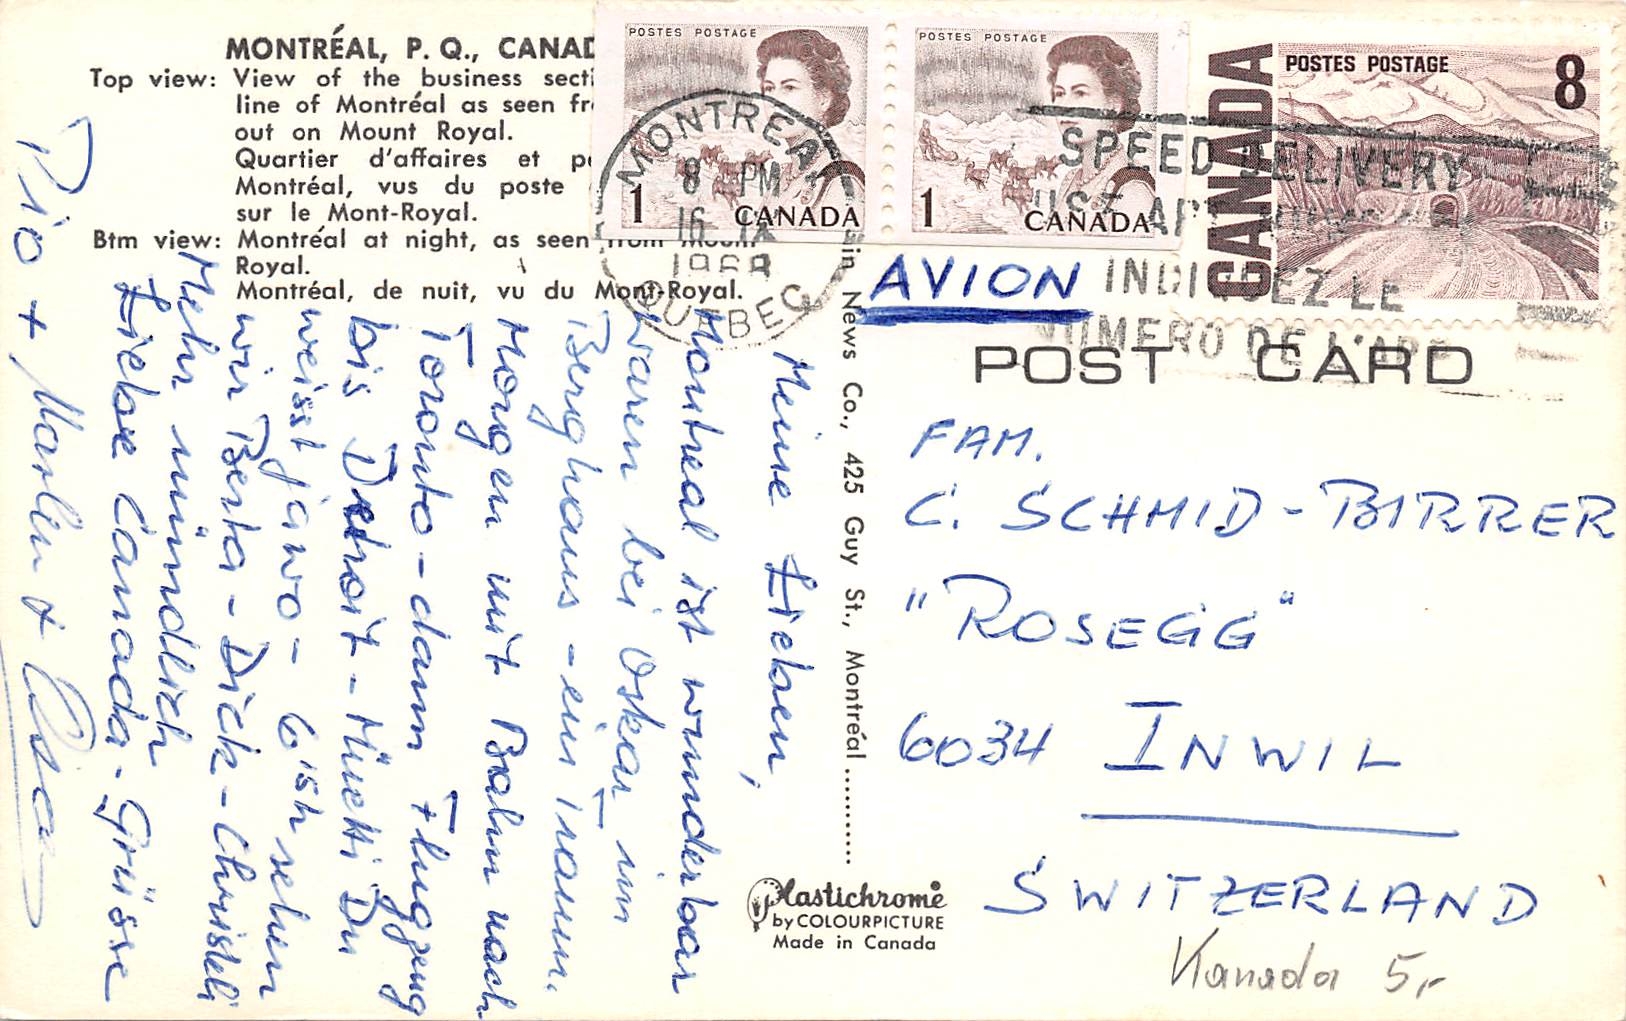 MONTRÉAL, P. Q., CANAD
Top view: View of the business secti
line of Montréal as seen fr
out on Mount Royal.
Quartier d'affaires et p
Montréal, vus du poste
sur le Mont-Royal.
Btm view: Montréal at night, as seen from Mount
Royal.
Montréal, de nuit, vu du Mont-Royal.
POSTES POSTAGE
1 CANADA
POSTES POSTAGE
1 CANADA
CANADA
POSTES POSTAGE 8
MONTREAL
8 PM
16
1968
QUEBEC
SPEED DELIVERY
USE
INDIQUEZ LE
NUMERO DE L'APP
AVION
POST CARD
Meine Lieben,
Montreal ist wunderbar
waren bei Oskar im
Berghaus - ein Traum.
Morgen mit Bahn nach
Toronto - dann Flugzeug
bis Detroit - Müetti Du
weisst ja wo - 6 ish sehen
wir Berta - Dick - Christeli
Mehr mündlich
Liebe Canada-Grüsse
Pio + Marlen +
News Co., 425 Guy St., Montréal
FAM.
C. SCHMID-BIRRER
"ROSEGG"
6034 INWIL
SWITZERLAND
Plastichrome
by COLOURPICTURE
Made in Canada
Kanada 5,-